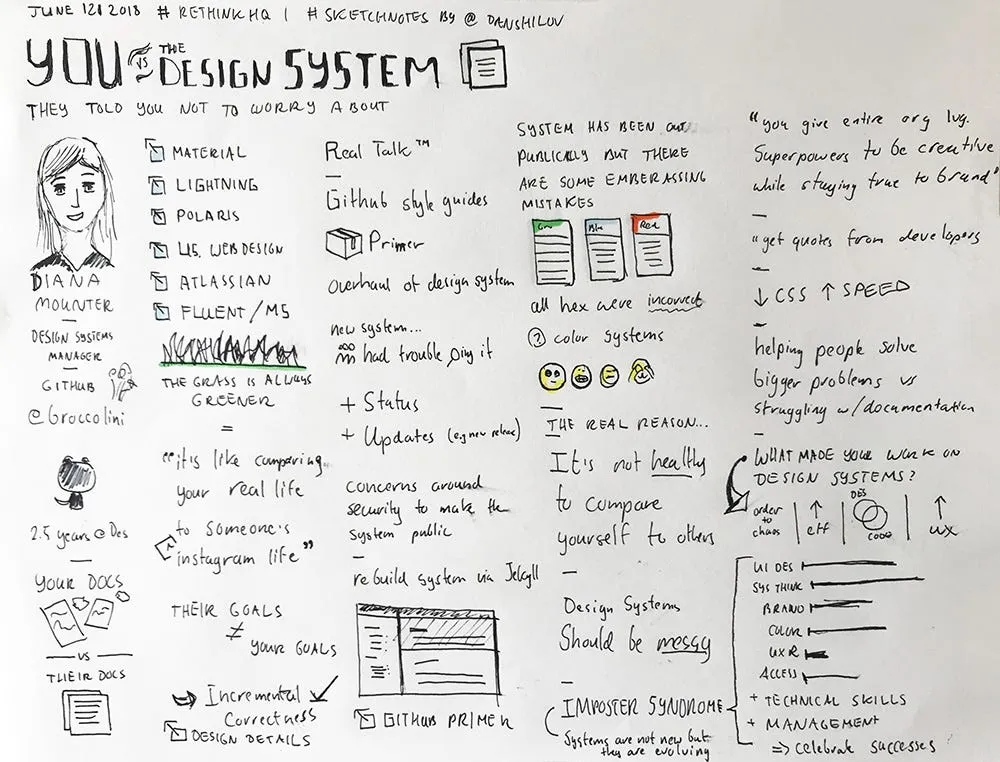 JUNE 12, 2018 # RETHINKHQ | # SKETCHNOTES BY @ DANSHILOV
YOU VS THE DESIGN SYSTEM
THEY TOLD YOU NOT TO WORRY ABOUT
DIANA
MOUNTER
DESIGN SYSTEMS
MANAGER
GITHUB
@broccolini
2.5 years @ Des
YOUR DOCS
VS
THEIR DOCS
MATERIAL
LIGHTNING
POLARIS
U.S. WEB DESIGN
ATLASSIAN
FLUENT/MS
THE GRASS IS ALWAYS
GREENER
=
"it's like comparing
your real life
to someone's
instagram life"
THEIR GOALS
≠
YOUR GOALS
Incremental
Correctness
DESIGN DETAILS
Real Talk™
Github style guides
Primer
overhaul of design system
new system...
had trouble using it
+ Status
+ Updates (e.g. new release)
Concerns around
security to make the
system public
rebuild system via Jekyll
GITHUB PRIMER
SYSTEM HAS BEEN out
PUBLICALLY BUT THERE
ARE SOME EMBERASSING
MISTAKES
Grn Blu Red
all hex were incorrect
② color systems
THE REAL REASON...
It's not healthy
to compare
yourself to others
Design Systems
Should be messy
IMPOSTER SYNDROME
Systems are not new but
they are evolving
"you give entire org lvg.
Superpowers to be creative
while staying true to brand"
"get quotes from developers
↓ CSS ↑ SPEED
helping people solve
bigger problems vs
struggling w/documentation
WHAT MADE YOUR WORK ON
DESIGN SYSTEMS?
order to chaos | ↑ eff | DES CODE | ↑ UX
UI DES
SYS THINK
BRAND
COLOR
UXR
ACCESS
+ TECHNICAL SKILLS
+ MANAGEMENT
⇒ celebrate successes